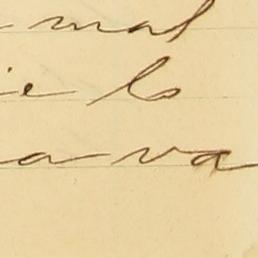 mal
ie lo
a va